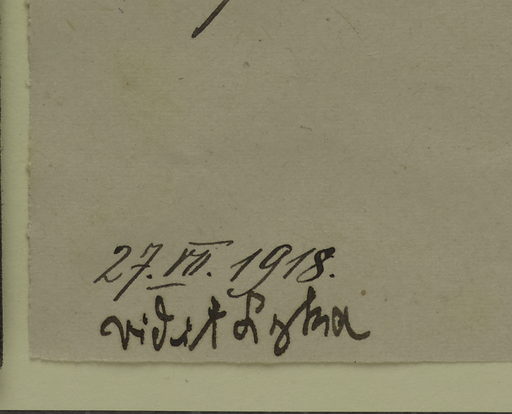 27. VII. 1918.
vidit Lyka